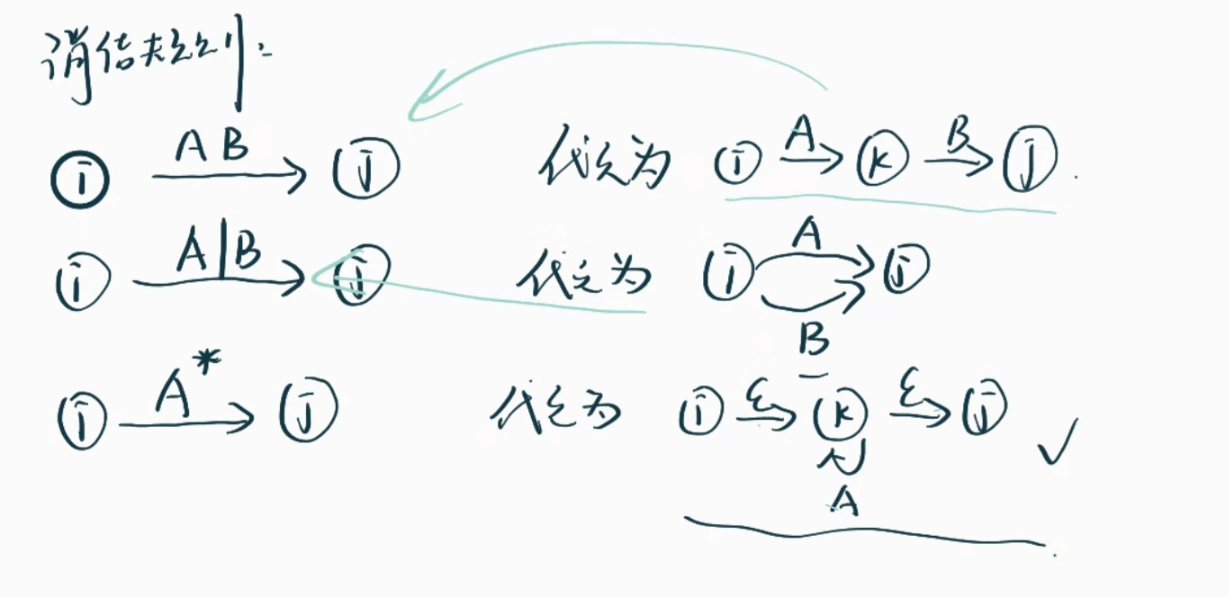 消结规则:
i AB j 代之为 i A k B j.
i A|B j 代之为 i A j
B
i A* j 代之为 i ε k ε j
A